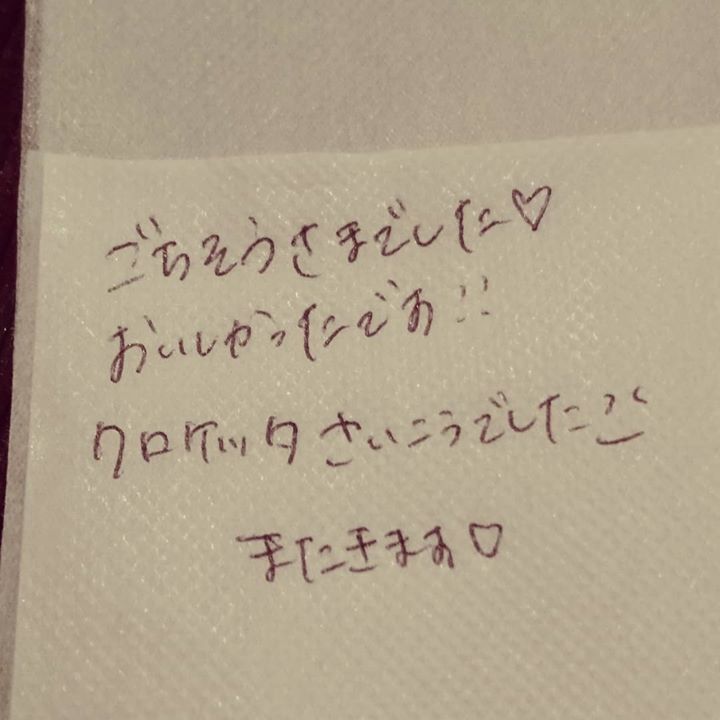 ごちそうさまでした♡
おいしかったです!!
クロケッタさいこうでした
またきます♡